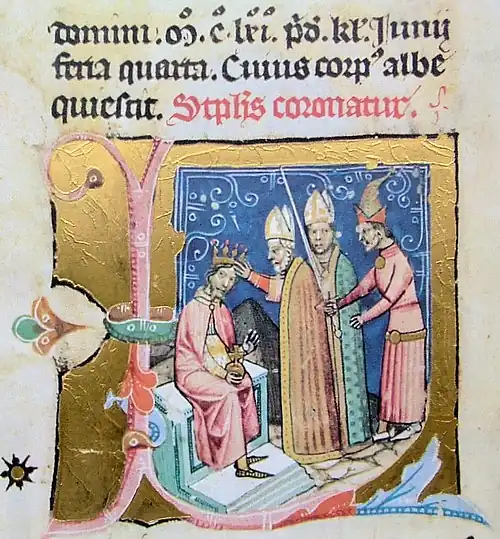 domini. M̊. C̊. lxi̊. p̄d. kł. Junij
feria quarta. Cuius corpꝰ albe
quiescit. Stpħs coronatur.